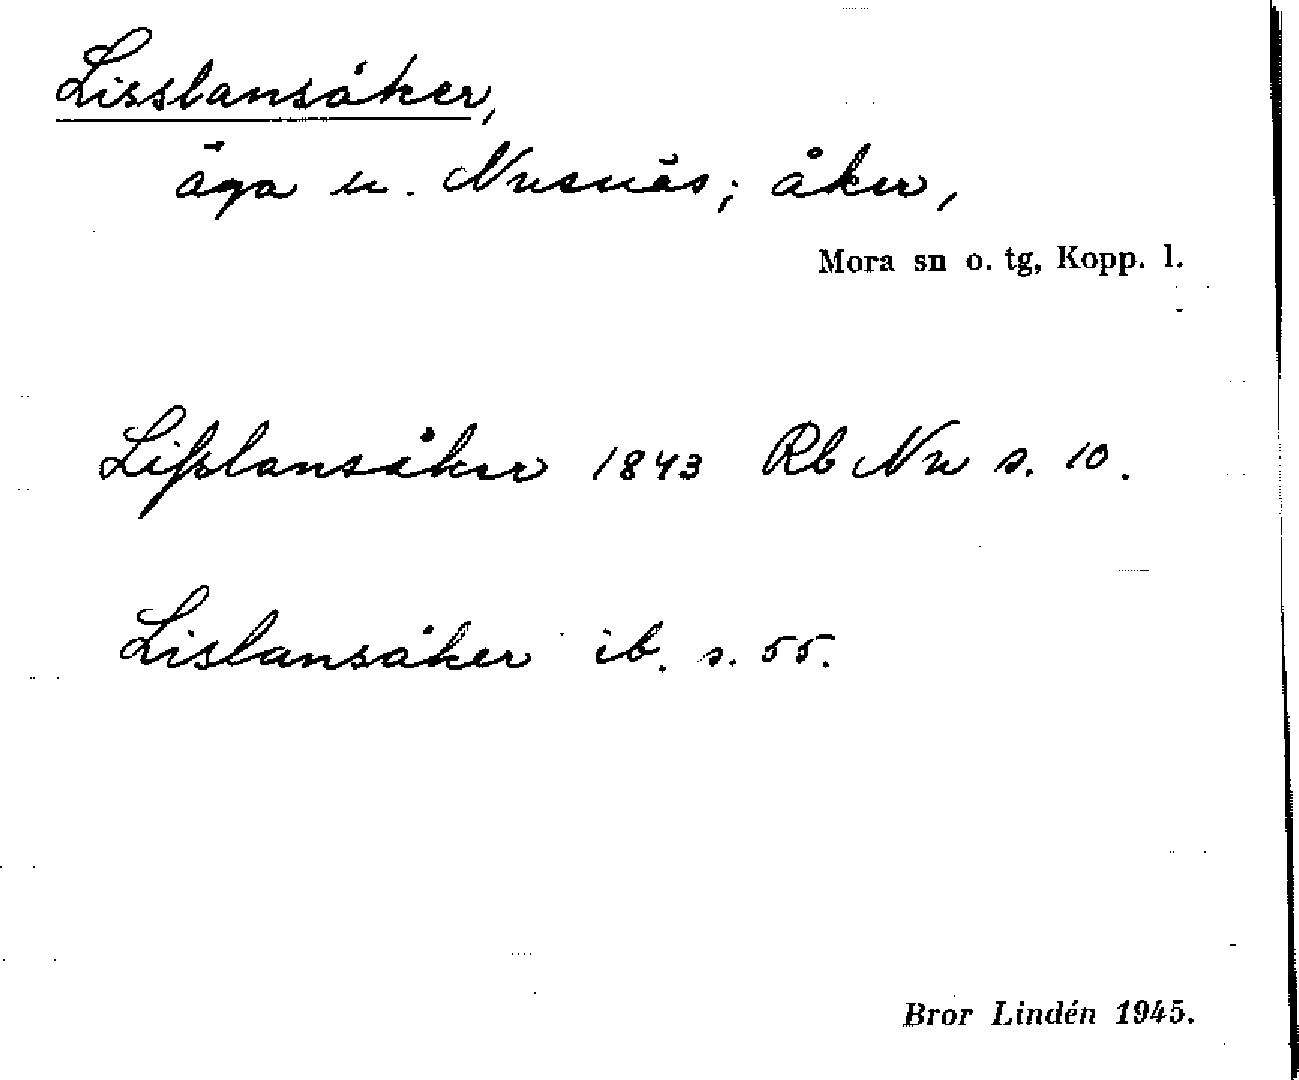 Lisslansåker,
äga u. Nusnäs; åker,
Mora sn o. tg, Kopp. l.
Lißlansåker 1843 Rb Nu s. 10.
Lislansåker ib. s. 55.
Bror Lindén 1945.